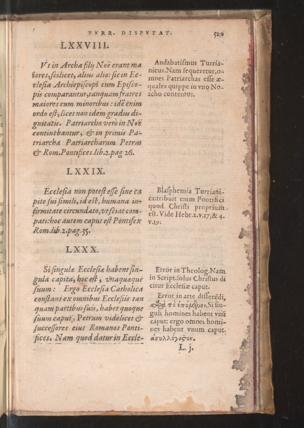 TVRR. DISPVTAT.
LXXVIII.
Vt in Archa filij Noë erant ma
iores, scilicet, alius alio: sic in Ec-
clesia Archiepiscopi cum Episco-
pis comparantur, tanquam fratres
maiores cum minoribus: idē enim
ordo est, licet non idem gradus di-
gnitatis. Patriarcha verò in Noë
continebantur, & in primis Pa-
triarcha Patriarcharum Petrus
& Rom. Pontifices. lib. 2. pag 26.
Andabatismus Turria-
nicus. Nam sequeretur, o-
mnes Patriarchas esse æ-
quales quippe in vno No-
acho contentos.
LXXIX.
Ecclesia non potest esse sine ca
pite sui simili, id est, humana in-
firmitate circundato, vt sciat com-
pati: hoc autem caput est Pontifex
Rom. lib. 2. pag. 35.
Blasphemia Turriani-
tribuit enim Pontifici
quod Christi proprium
est. Vide Hebr. 2. v. 17. & 4.
v. 15.
LXXX.
Si singulæ Ecclesiæ habent sin-
gula capita, hoc est, vnaquæque
suum: Ergo Ecclesia Catholica
constans ex omnibus Ecclesiis tan
quam partibus suis, habet quoque
suum caput, Petrum videlicet &
successores eius Romanos Ponti-
fices. Nam quod datur in Eccle-
Error in Theolog. Nam
in Script. solus Christus di
citur Ecclesiæ caput.
Error in arte disserēdi,
Si sin-
guli homines habent vnū
caput: ergo omnes homi-
nes habent vnum caput.
L. j.